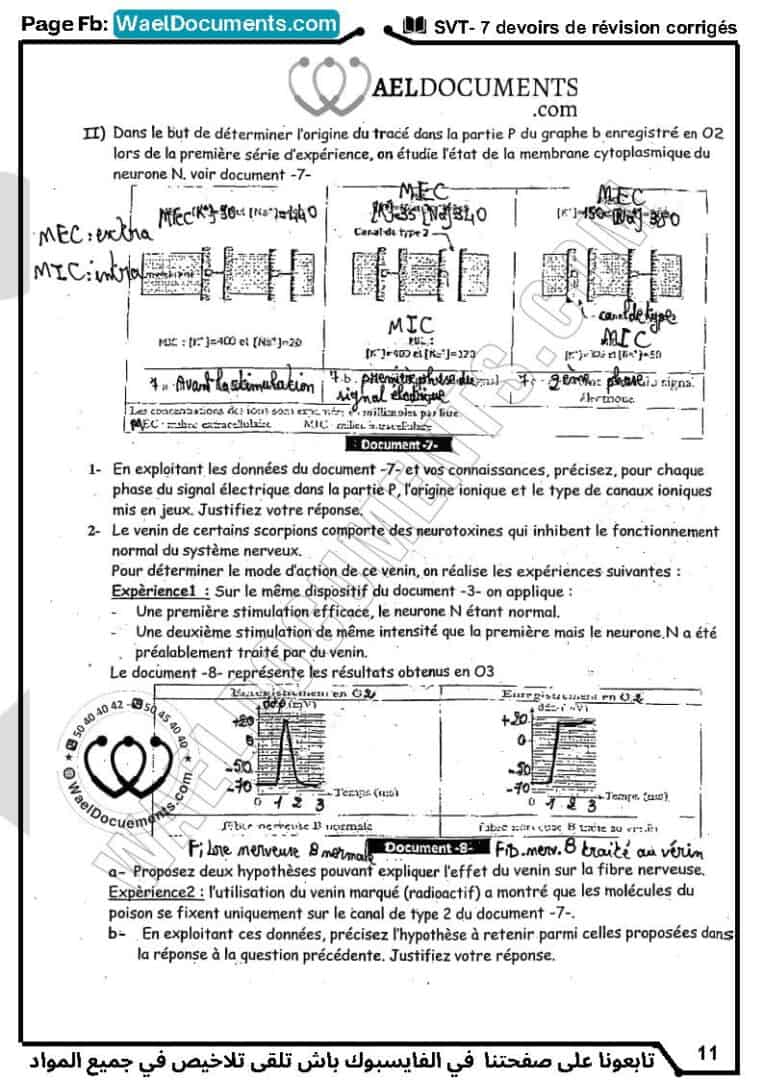 Page Fb: WaelDocuments.com
SVT- 7 devoirs de révision corrigés
AELDOCUMENTS
.com
II) Dans le but de déterminer l'origine du tracé dans la partie P du graphe b enregistré en O2
lors de la première série d'expérience, on étudie l'état de la membrane cytoplasmique du
neurone N. voir document -7-
MEC
MEC
MEC : extra
MIC : intra
Canal de type 2
canal de type
MIC
MIC
MIC : [K⁺]=400 et [Na⁺]=20
Avant la stimulation
7.b. première phase du signal
signal électrique
2ème phase
MEC : milieu extracellulaire MIC : milieu intracellulaire
Document -7-
1- En exploitant les données du document -7- et vos connaissances, précisez, pour chaque
phase du signal électrique dans la partie P, l'origine ionique et le type de canaux ioniques
mis en jeux. Justifiez votre réponse.
2- Le venin de certains scorpions comporte des neurotoxines qui inhibent le fonctionnement
normal du système nerveux.
Pour déterminer le mode d'action de ce venin, on réalise les expériences suivantes :
Expèrience1 : Sur le même dispositif du document -3- on applique :
- Une première stimulation efficace, le neurone N étant normal.
- Une deuxième stimulation de même intensité que la première mais le neurone N a été
préalablement traité par du venin.
Le document -8- représente les résultats obtenus en O3
Enregistrement en O2
Enregistrement en O2
ddp (mV)
+20
0
-50
-70
0 1 2 3
Temps (ms)
ddp (mV)
+20
0
-50
-70
0 1 2 3
Temps (ms)
50 40 40 42 - 50 45 40 40
WaelDocuements.com
WAELDOCUMENTS.COM
Fibre nerveuse B normale
Fibre nerveuse B traité au venin
Fibre nerveuse B normale
Document -8-
Fib. nerv. B traité au vérin
a- Proposez deux hypothèses pouvant expliquer l'effet du venin sur la fibre nerveuse.
Expèrience2 : l'utilisation du venin marqué (radioactif) a montré que les molécules du
poison se fixent uniquement sur le canal de type 2 du document -7-.
b- En exploitant ces données, précisez l'hypothèse à retenir parmi celles proposées dans
la réponse à la question précédente. Justifiez votre réponse.
11
تابعونا على صفحتنا في الفايسبوك باش تلقى تلاخيص في جميع المواد